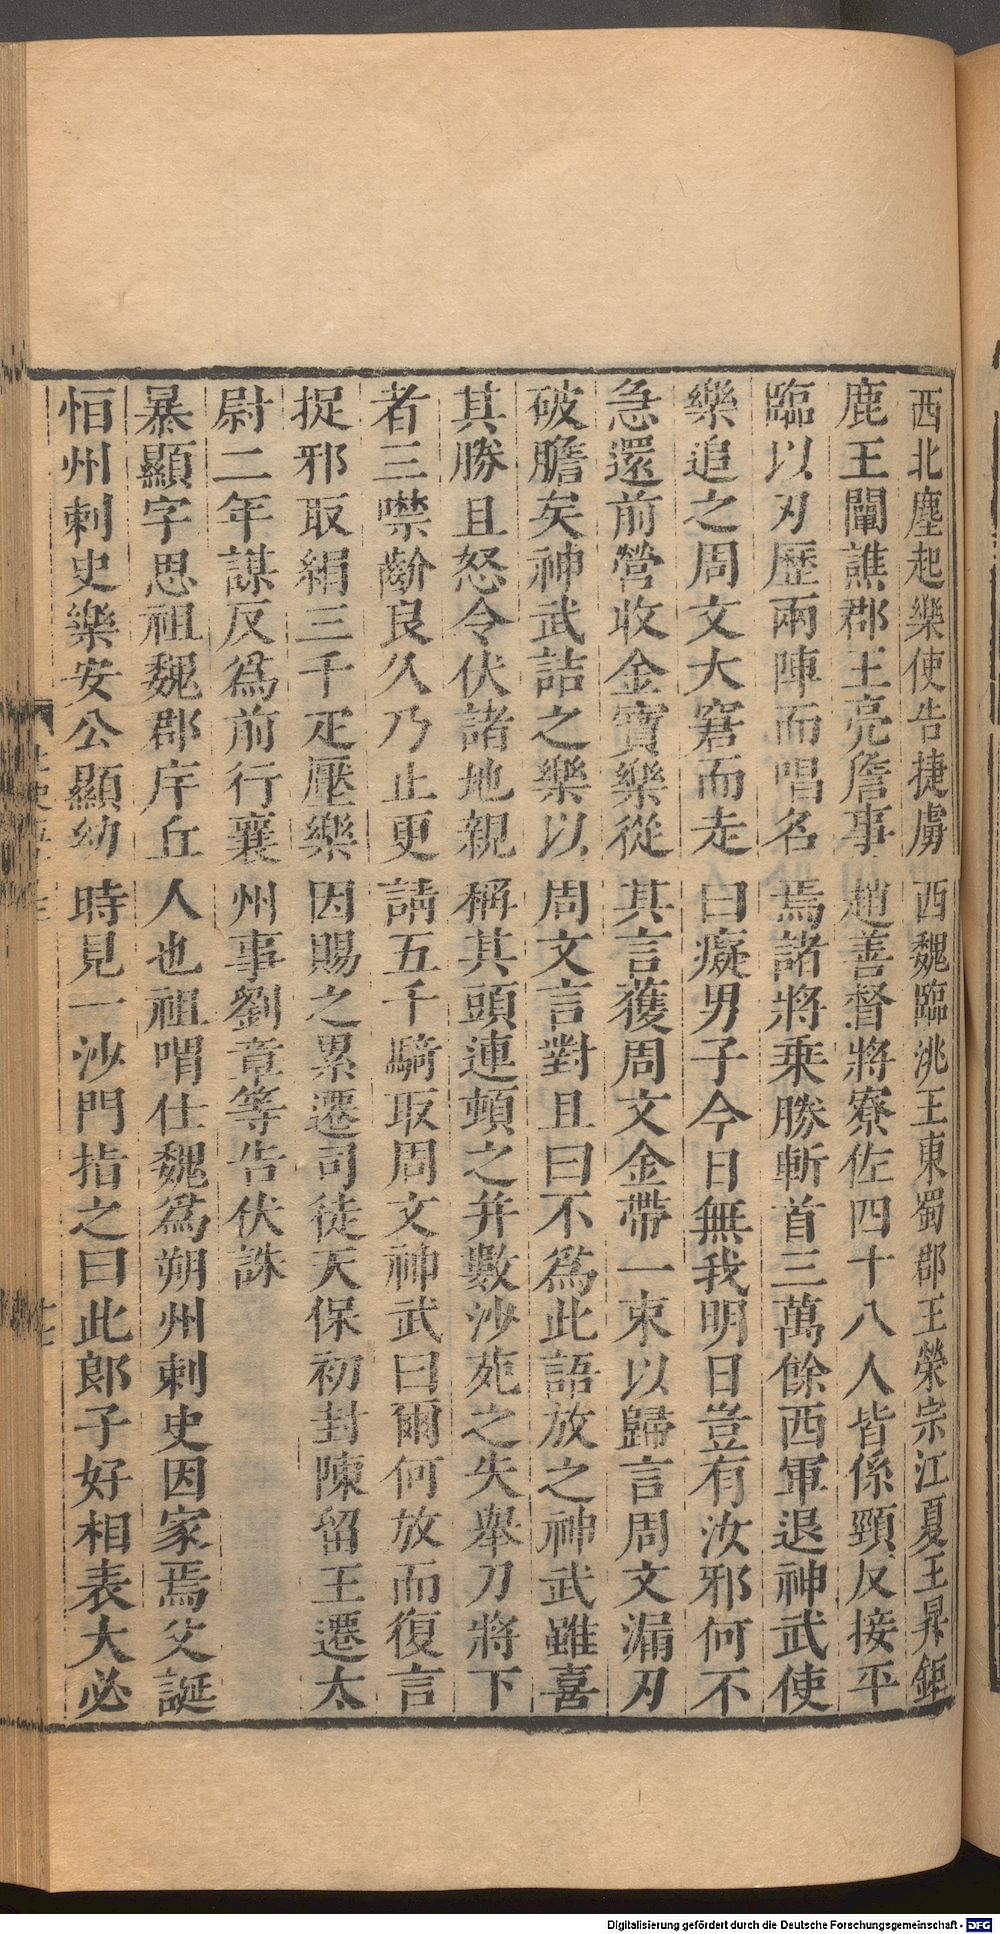 西北塵起樂使告捷虜西魏臨洮王東蜀郡王榮宗江夏王昇鉅
鹿王闡譙郡王亮詹事趙善督將寮佐四十八人皆係頸反接平
臨以刃歷兩陣而唱名焉諸將乘勝斬首三萬餘西軍退神武使
樂追之周文大窘而走曰癡男子今日無我明日豈有汝邪何不
急還前營收金寶樂從其言獲周文金帶一束以歸言周文漏刃
破膽矣神武詰之樂以周文言對且曰不爲此語放之神武雖喜
其勝且怒令伏諸地親稱其頭連頓之并數沙苑之失舉刀將下
者三噤齡良久乃止更請五千騎取周文神武曰爾何放而復言
捉邪取絹三千疋壓樂因賜之累遷司徒天保初封陳留王遷太
尉二年謀反爲前行襄州事劉章等告伏誅
暴顯字思祖魏郡庠丘人也祖喟仕魏爲朔州刺史因家焉父誕
怛州刺史樂安公顯幼時見一沙門指之曰此郎子好相表大必
Digitalisierung gefördert durch die Deutsche Forschungsgemeinschaft - DFG